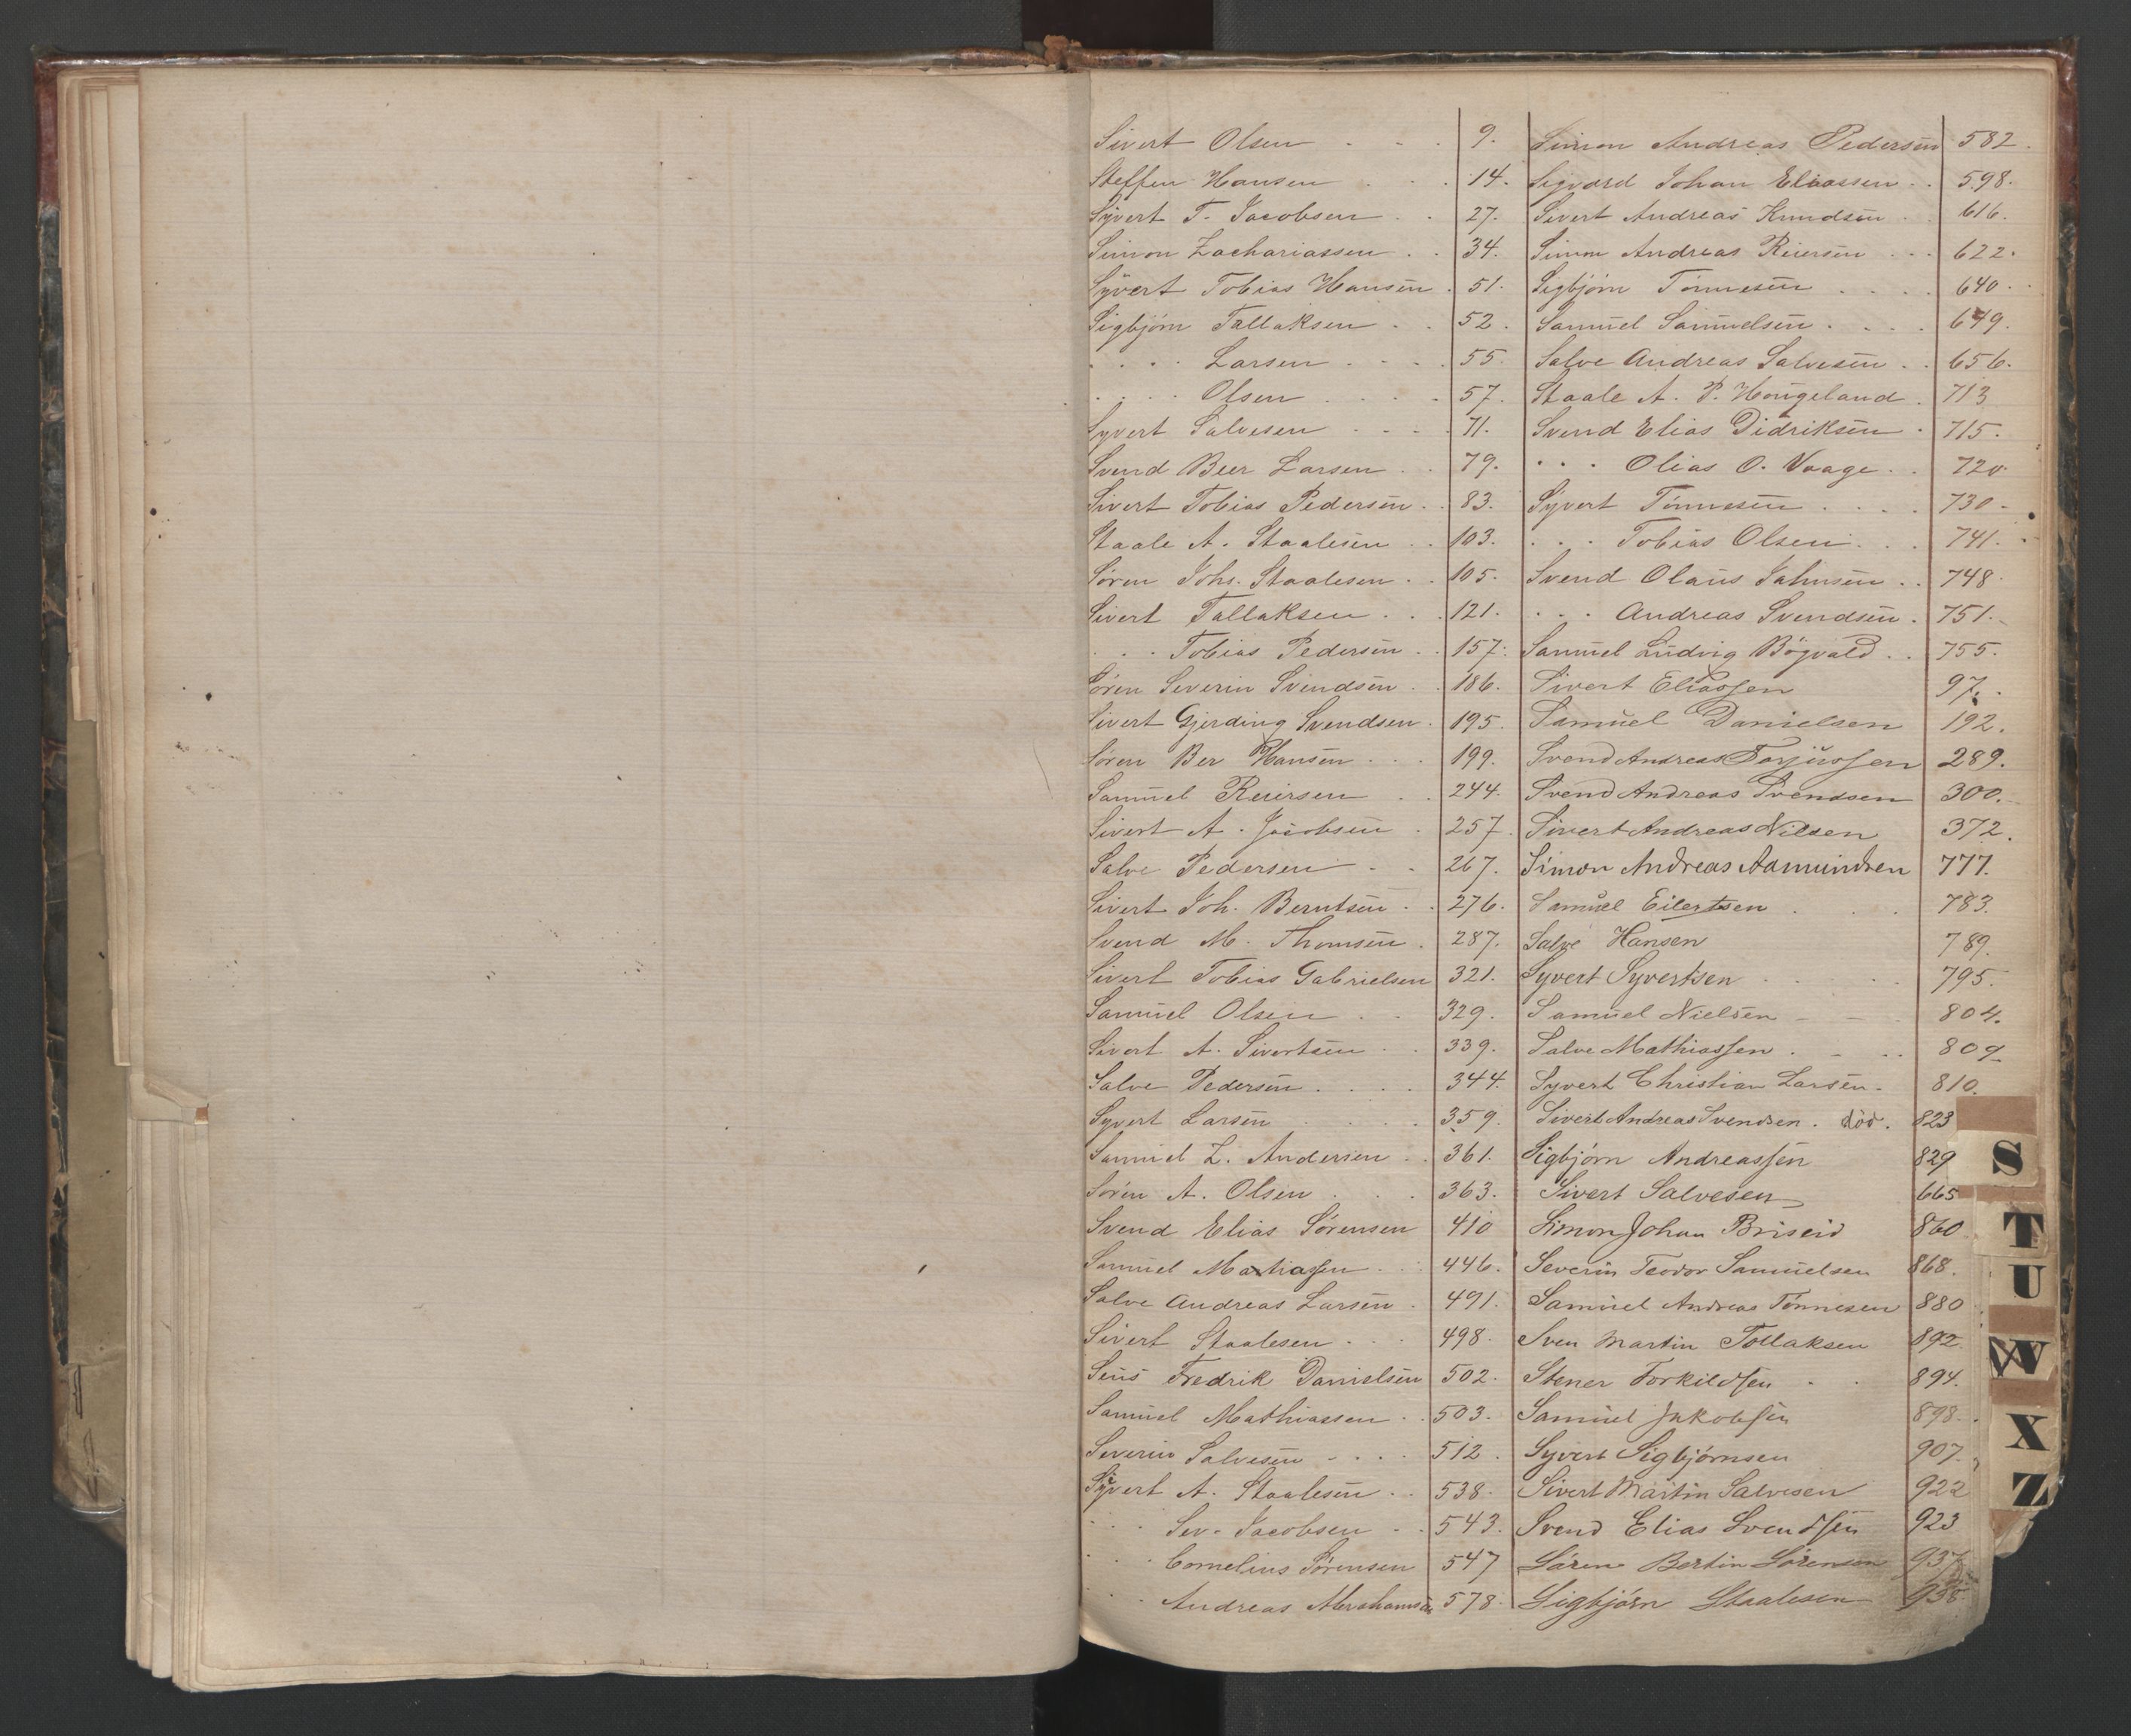 Sivert Olsen . . . 9.
Steffen Hansen . . . 14.
Syvert T. Jacobsen . . 27.
Simon Zachariassen . . 34.
Syvert Tobias Hansen . 51.
Sigbjörn Tallaksen . . 52.
. . . . Larsen . . . . 55.
. . . . Olsen . . . . 57.
Syvert Salvesen . . . . 71.
Svend Beer Larsen . . 79.
Sivert Tobias Pedersen . . 83.
Staale A. Staalesen . . 103.
Sören Johs. Staalesen . . 105.
Sivert Tallaksen . . . 121.
. . . Tobias Pedersen . . 157.
Sören Severin Svendsen . . 186.
Sivert Gjerding Svendsen . 195.
Sören Ber Hansen . . . 199.
Samuel Reiersen . . 244.
Sivert A. Jacobsen . 257.
Salve Pedersen . . 267.
Sivert Joh. Berntsen . . 276.
Svend M. Thomsen . 287.
Sivert Tobias Gabrielsen 321.
Samuel Olsen . . 329.
Sivert A. Sivertsen . . 339.
Salve Pedersen . . . . 344.
Syvert Larsen . . . . 359.
Samuel Z. Andersen . . 361.
Sören A. Olsen . . . 363.
Svend Elias Sörensen 410
Samuel Mathiassen . . . 446.
Salve Andreas Larsen . 491.
Sivert Staalesen . . . 498.
Sens Fredrik Danielsen 502.
Samuel Mathiassen . . 503.
Severin Salvesen . . . . 512.
Syvert A. Staalesen . . 538.
. . . Sev. Jacobsen . . 543.
. . . Cornelius Sörensen 547
. . Andreas Abrahamsen 578.
Simon Andreas Pedersen 582.
Sigvard Johan Eliassen . . 598.
Sivert Andreas Knudsen . . 616.
Simon Andreas Reiersen . . . 622.
Sigbjörn Tönnesen . . . . 640.
Samuel Samuelsen . . . . 649.
Salve Andreas Salvesen . . 656.
Staale A. P. Hougeland . 713
Svend Elias Didriksen . 715.
. . . Olias O. Vaage . . 720.
Syvert Tönnesen . . . . 730.
. . . Tobias Olsen . . . 741.
Svend Olaus Jahnsen . . 748.
. . . Andreas Svendsen . 751.
Samuel Ludvig Bögvald . . 755.
Sivert Eliassen 97.
Samuel Danielsen 192.
Svend Andreas Terjussen 289.
Svend Andreas Svendsen 300.
Sivert Andreas Nilsen 372.
Simon Andreas Aamundsen 777.
Samuel Eilertsen . . . 783.
Salve Hansen 789.
Syvert Syvertsen . . . . 795.
Samuel Nielsen - - . 804.
Salve Mathiassen . - . . 809.
Syvert Christian Larsen . 810.
Sivert Andreas Svendsen . död. 823
Sigbjörn Andreassen 829
Sivert Salvesen 665
Simon Johan Briseid 860
Severin Teodor Samuelsen 868.
Samuel Andreas Tönnesen 880
Sven Martin Tollaksen 892.
Stener Torkildsen . . 894.
Samuel Jakobsen 898.
Syvert Sigbjörnsen 907.
Sivert Martin Salvesen 922
Svend Elias Svendsen 923
Sören Bertin Sörensen 937
Sigbjörn Staalesen 938
S
T
U
W
X
Z